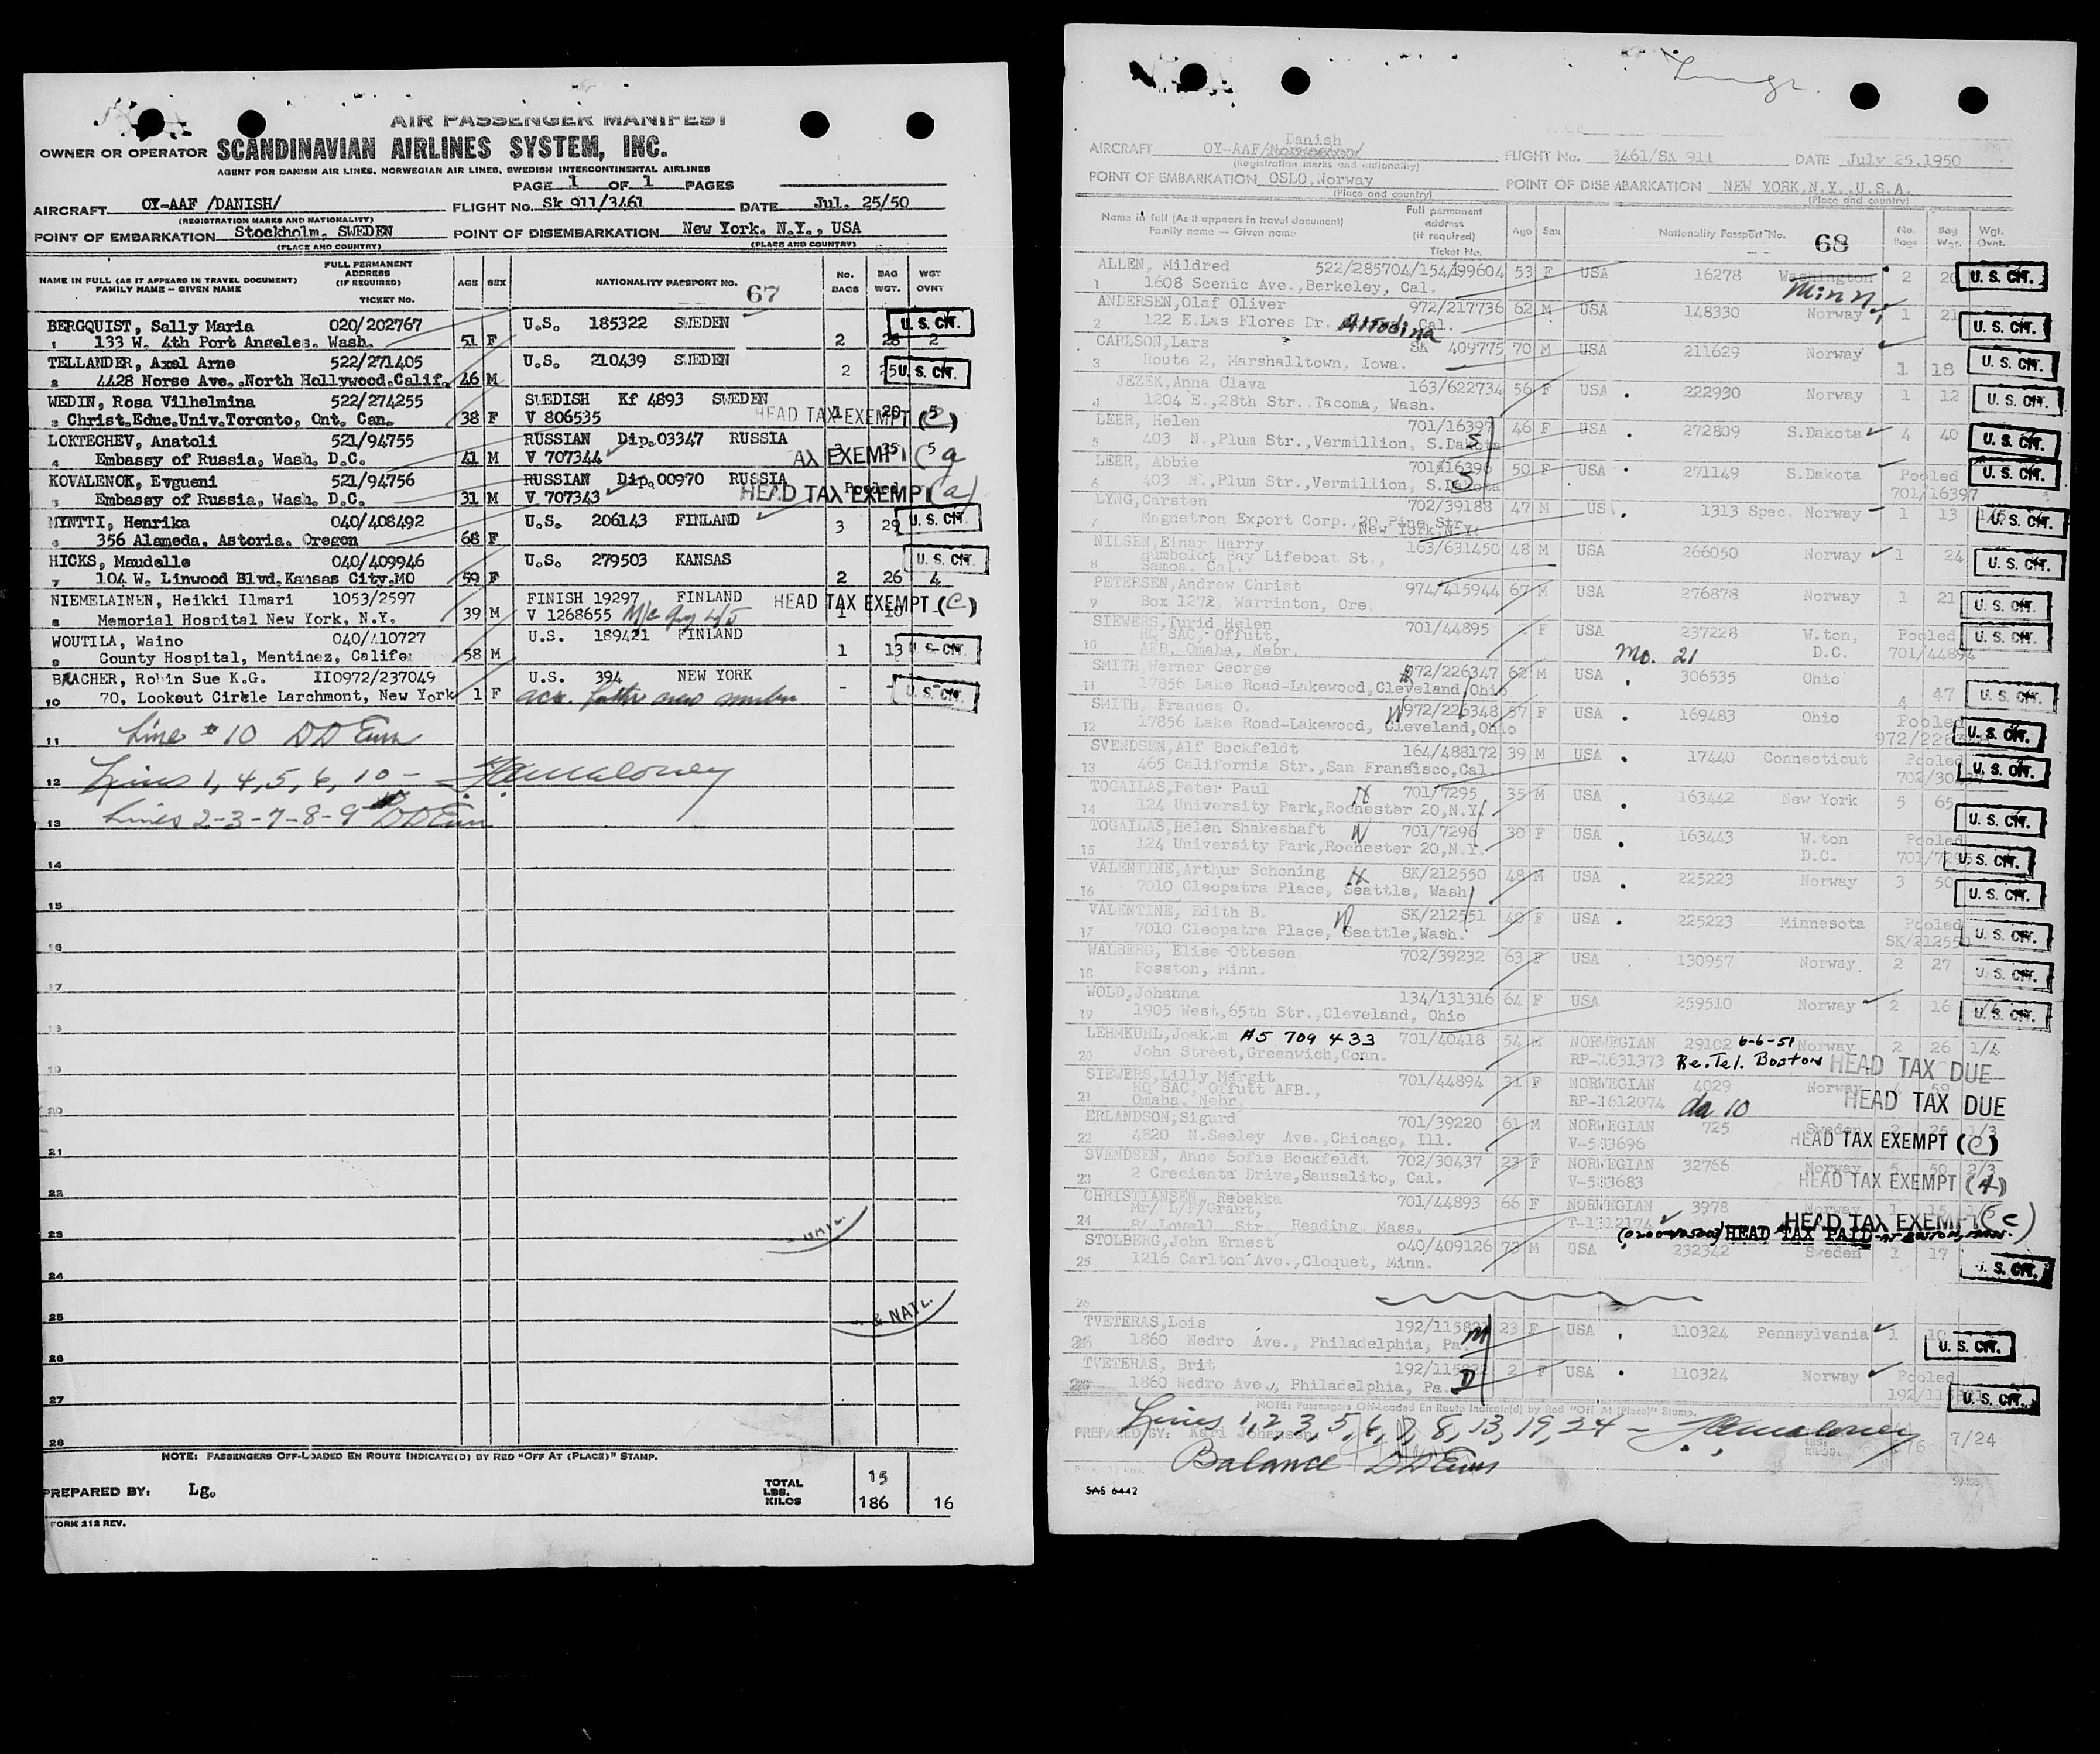 AIR PASSENGER MANIFEST
OWNER OR OPERATOR SCANDINAVIAN AIRLINES SYSTEM, INC.
AGENT FOR DANISH AIR LINES, NORWEGIAN AIR LINES, SWEDISH INTERCONTINENTAL AIRLINES
PAGE 1 OF 1 PAGES
AIRCRAFT OY-AAF /DANISH/ FLIGHT No. Sk 911/3461 DATE Jul. 25/50
(REGISTRATION MARKS AND NATIONALITY)
POINT OF EMBARKATION Stockholm, SWEDEN POINT OF DISEMBARKATION New York, N.Y., USA
(PLACE AND COUNTRY) (PLACE AND COUNTRY)
NAME IN FULL (AS IT APPEARS IN TRAVEL DOCUMENT) FAMILY NAME – GIVEN NAME FULL PERMANENT ADDRESS (IF REQUIRED) TICKET NO. AGE SEX NATIONALITY PASSPORT NO. 67 No. BAGS BAG WGT. WGT OVNT
BERGQUIST, Sally Maria 020/202767 U.S. 185322 SWEDEN U. S. CIT.
1 133 W. 4th Port Angeles, Wash. 51 F 2 28 2
TELLANDER, Axel Arne 522/271405 U.S. 210439 SWEDEN
2 4428 Norse Ave., North Hollywood, Calif. 46 M 2 25 U. S. CIT.
WEDIN, Rosa Vilhelmina 522/274255 SWEDISH Kf 4893 SWEDEN
3 Christ.Educ.Univ.Toronto, Ont. Can. 38 F V 806535 HEAD TAX EXEMPT (C) 1 20 5
LOKTECHEV, Anatoli 521/94755 RUSSIAN Dip.03347 RUSSIA
4 Embassy of Russia, Wash. D.C. 41 M V 707344 AX EXEMPT (a 3 35 5
KOVALENOK, Evgueni 521/94756 RUSSIAN Dip.00970 RUSSIA
5 Embassy of Russia, Wash. D.C. 31 M V 707343 HEAD TAX EXEMPT (a) Pooled
MYNTTI, Henrika 040/408492 U.S. 206143 FINLAND 3 29 U. S. CIT.
6 356 Alameda, Astoria, Oregon 68 F
HICKS, Maudelle 040/409946 U.S. 279503 KANSAS U. S. CIT.
7 104 W. Linwood Blvd.Kansas City.MO 59 F 2 26 4
NIEMELAINEN, Heikki Ilmari 1053/2597 FINISH 19297 FINLAND HEAD TAX EXEMPT (C)
8 Memorial Hospital New York, N.Y. 39 M V 1268655 1 10 -
WOUTILA, Waino 040/410727 U.S. 189421 FINLAND
9 County Hospital, Mentinez, Califo 58 M 1 13 U. S. CIT.
BRACHER, Robin Sue K.G. II0972/237049 U.S. 394 NEW YORK
10 70, Lookout Cirkle Larchmont, New York 1 F - - U. S. CIT.
Line # 10 DD Enn
11
Lines 1, 4, 5, 6, 10 – Maloney
12
Lines 2-3-7-8-9 DD Enn
13
14
15
16
17
18
19
20
21
22
23
24
& NATL.
25
26
27
28
NOTE: PASSENGERS OFF-LOADED EN ROUTE INDICATE(D) BY RED "OFF AT (PLACE)" STAMP.
PREPARED BY: Lg. TOTAL LBS. KILOS 15 186 16
FORM 212 REV.
Danish
AIRCRAFT OY-AAF/ FLIGHT No. 3461/SK 911 DATE July 25.1950
(Registration marks and nationality)
POINT OF EMBARKATION OSLO,Norway POINT OF DISEMBARKATION NEW YORK,N.Y.,U.S.A.
(Place and country) (Place and country)
Name in full (As it appears in travel document) Family name — Given name Full permanent address (if required) Ticket No. Age Sex Nationality Passport No. 68 No. Bags Bag Wgt. Wgt. Ovnt.
ALLEN, Mildred 522/285704/154/199604 53 F USA 16278 Washington 2 20 U. S. CIT.
1 1608 Scenic Ave.,Berkeley, Cal. Minn
ANDERSEN,Olaf Oliver 972/217736 62 M USA 148330 Norway 1 21
2 122 E.Las Flores Dr. Altadina Cal. U. S. CIT.
CARLSON,Lars SK 409775 70 M USA 211629 Norway
3 Route 2, Marshalltown, Iowa. 1 18 U. S. CIT.
JEZEK,Anna Olava 163/622734 56 F USA 222930 Norway 1 12 U. S. CIT.
4 1204 E.,28th Str. Tacoma, Wash.
LEER, Helen 701/16397 46 F USA 272809 S.Dakota 4 40 U. S. CIT.
5 403 N.,Plum Str.,Vermillion, S.Dakota S
LEER, Abbie 701/16396 50 F USA 271149 S.Dakota Pooled U. S. CIT.
6 403 N.,Plum Str.,Vermillion, S.Dakota S 701/16397
LYNG,Carsten 702/39188 47 M USA 1313 Spec. Norway 1 13 U. S. CIT.
7 Magnetron Export Corp.,20 Pine Str. New York,N.Y.
NILSEN,Einar Harry 163/631450 48 M USA 266050 Norway 1 24 U. S. CIT.
8 Humboldt Bay Lifeboat St., Samoa, Cal.
PETERSEN,Andrew Christ 974/415944 67 M USA 276878 Norway 1 21 U. S. CIT.
9 Box 1272, Warrinton, Ore.
SIEWERS,Turid Helen 701/44895 2 F USA 237228 W.ton, Pooled U. S. CIT.
HQ SAC, Offutt,
10 AFB, Omaha, Nebr. Mo. 21 D.C. 701/44894
SMITH,Werner George 972/226347 62 M USA 306535 Ohio
11 17856 Lake Road-Lakewood,Cleveland,Ohio 4 47 U. S. CIT.
SMITH, Frances O. W 972/226348 57 F USA 169483 Ohio Pooled
12 17856 Lake Road-Lakewood, Cleveland,Ohio U. S. CIT.
SVENDSEN,Alf Bockfeldt 164/488172 39 M USA 17440 Connecticut Pooled
13 465 California Str.,San Fransisco,Cal 702/30437 U. S. CIT.
TOGAILAS,Peter Paul H 701/7295 35 M USA 163442 New York 5 65
14 124 University Park,Rochester 20,N.Y. U. S. CIT.
TOGAILAS,Helen Shakeshaft W 701/7296 30 F USA 163443 W.ton Pooled
15 124 University Park,Rochester 20,N.Y. D.C. 701/7295 U. S. CIT.
VALENTINE,Arthur Schoning H SK/212550 48 M USA 225223 Norway 3 50
16 7010 Cleopatra Place, Seattle, Wash U. S. CIT.
VALENTINE, Edith B. W SK/212551 40 F USA 225223 Minnesota Pooled
17 7010 Cleopatra Place, Seattle,Wash. SK/212550 U. S. CIT.
WALBERG, Elise Ottesen 702/39232 63 F USA 130957 Norway 2 27
18 Fosston, Minn. U. S. CIT.
WOLD,Johanna 134/131316 64 F USA 259510 Norway 2 16
19 1905 West,65th Str.,Cleveland, Ohio U. S. CIT.
LEHMKUHL,Joakim A5 709 433 701/40418 54 M NORWEGIAN 29102 6-6-51 Norway 2 26 1/4
20 John Street,Greenwich,Conn. RP-1631373 Re.Tel. Boston HEAD TAX DUE
SIEWERS,Lilly Margit 701/44894 31 F NORWEGIAN 4029 Norway 4 59
HQ SAC, Offutt AFB.,
21 Omaha, Nebr. RP-1612074 da 10 HEAD TAX DUE
ERLANDSON,Sigurd 701/39220 61 M NORWEGIAN 725 Sweden 2 25 1/3
22 4820 N.Seeley Ave.,Chicago, Ill. V-583696 HEAD TAX EXEMPT (C)
SVENDSEN, Anne Sofie Bockfeldt 702/30437 23 F NORWEGIAN 32766 Norway 5 50 2/3
23 2 Crecienta Drive,Sausalito, Cal. V-583683 HEAD TAX EXEMPT (A)
CHRISTIANSEN, Rebekka 701/44893 66 F NORWEGIAN 3978 Norway 1 15 1/5
Mr/ L/F/Grant,
24 84 Lowell Str. Reading, Mass. T-1312174 HEAD TAX EXEMPT (C)
HEAD TAX PAID AT BOSTON, MASS.
STOLBERG,John Ernest o40/409126 73 M USA 232342 Sweden 1 17
25 1216 Carlton Ave.,Cloquet, Minn. U. S. CIT.
26
TVETERAS,Lois 192/115821 23 F USA 110324 Pennsylvania 1 10
26 1860 Nedro Ave., Philadelphia, Pa. M U. S. CIT.
TVETERAS, Brit 2 F USA 110324 Norway Pooled
1860 Nedro Ave., Philadelphia, Pa. D U. S. CIT.
NOTE: Passengers ON-Loaded En Route Indicate(d) by Red "Off At (Place)" Stamp.
Lines 1, 2, 3, 5, 6, 7, 8, 13, 19, 24 – Maloney
PREPARED BY: Kari Johansen 7/24
Balance DD Enn
SAS 6442